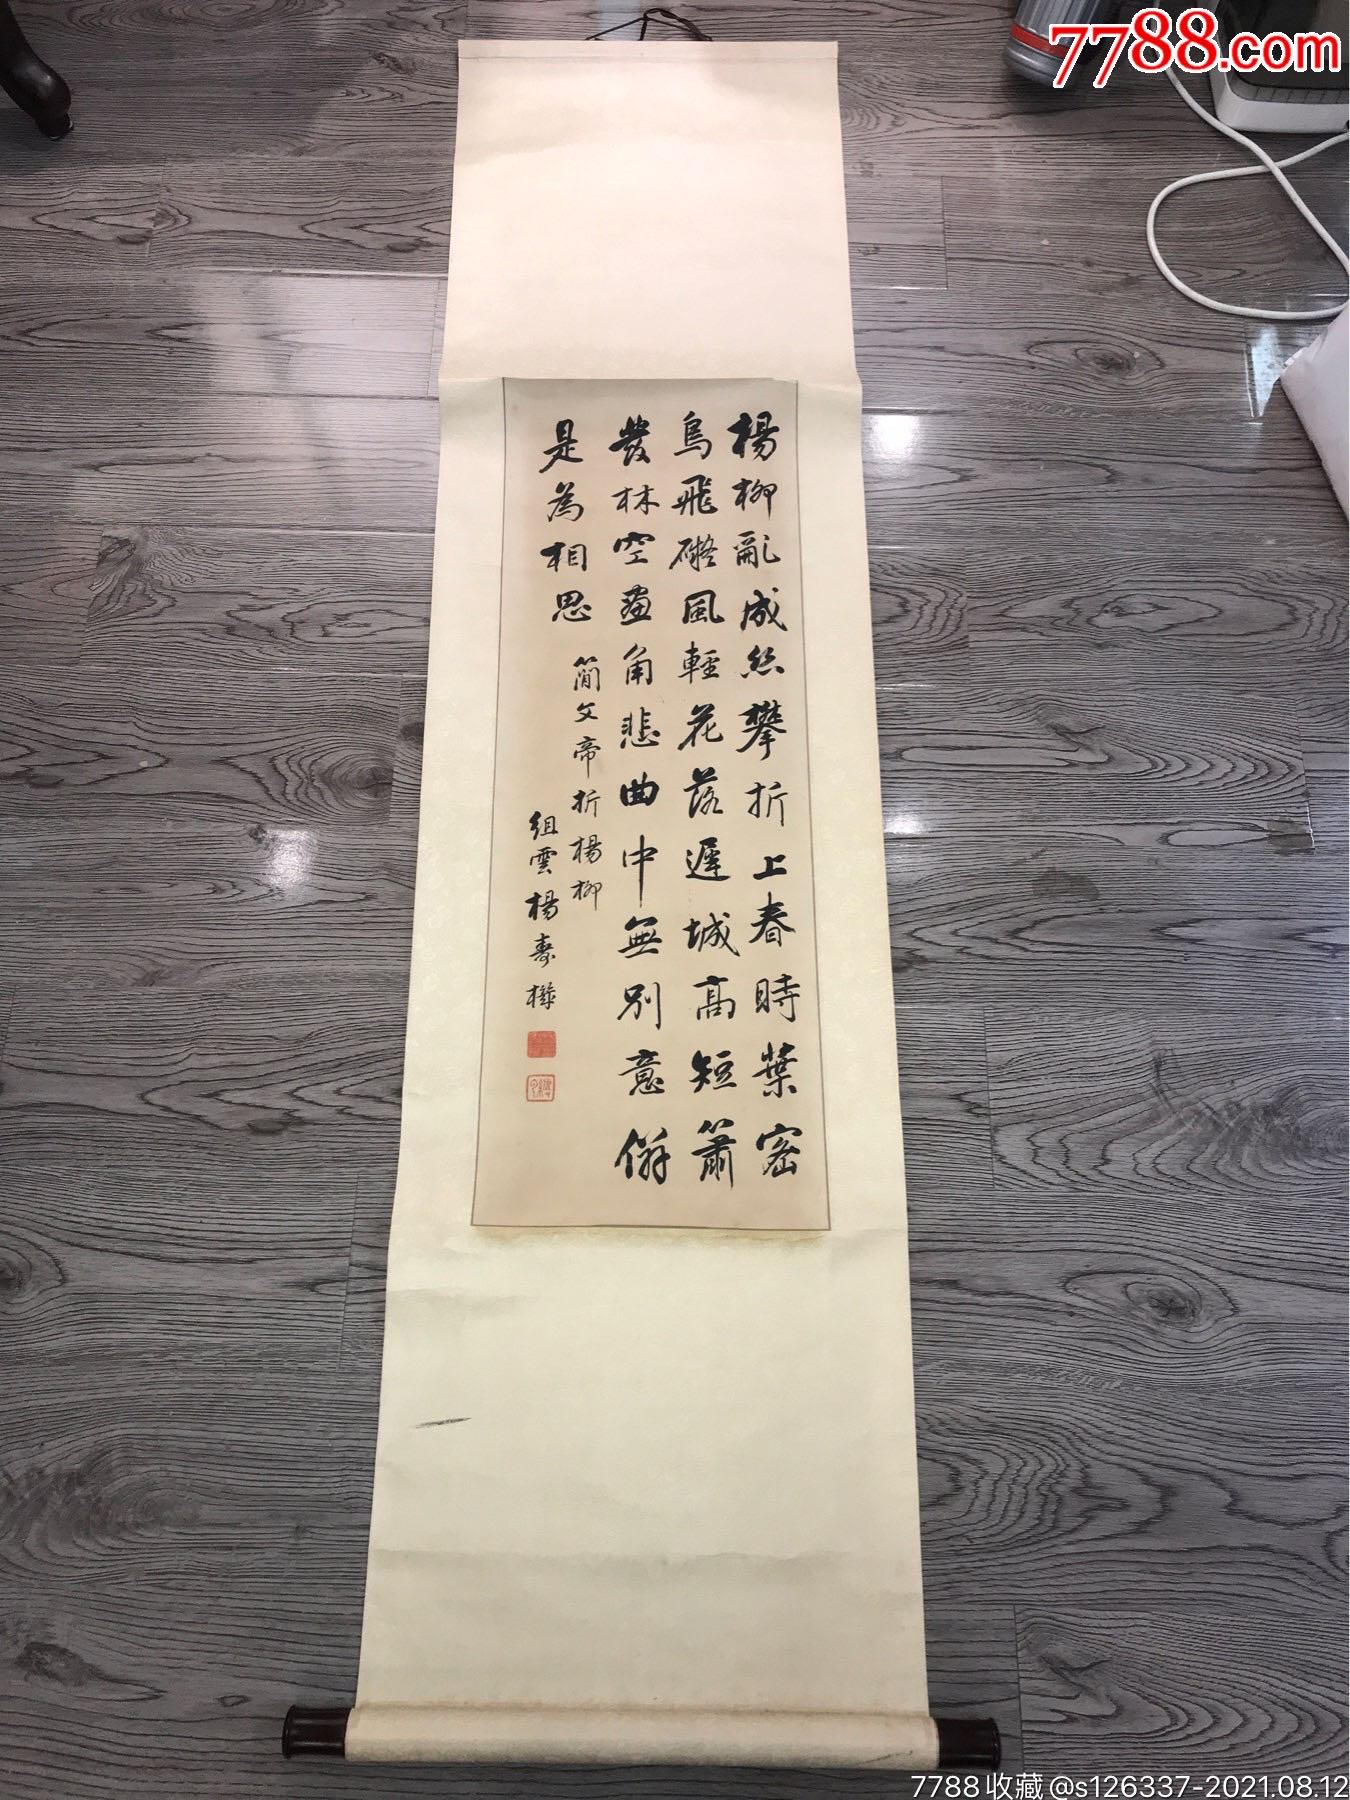 7788.com
楊柳亂成絲攀折上春時葉密
鳥飛礙風輕花落遲城高短簫
發林空畫角悲曲中無別意併
是為相思
簡文帝折楊柳
組雲楊壽
7788收藏@s126337-2021.08.12